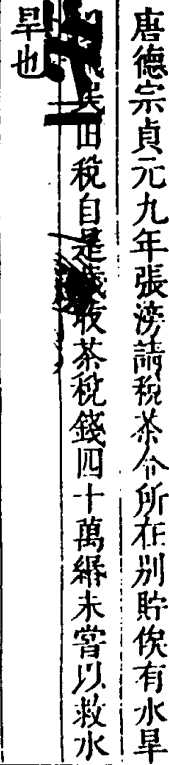 唐德宗貞元九年張滂請稅茶令所在別貯俟有水旱
民田稅自是歲收茶稅錢四十萬緡未嘗以救水
旱也